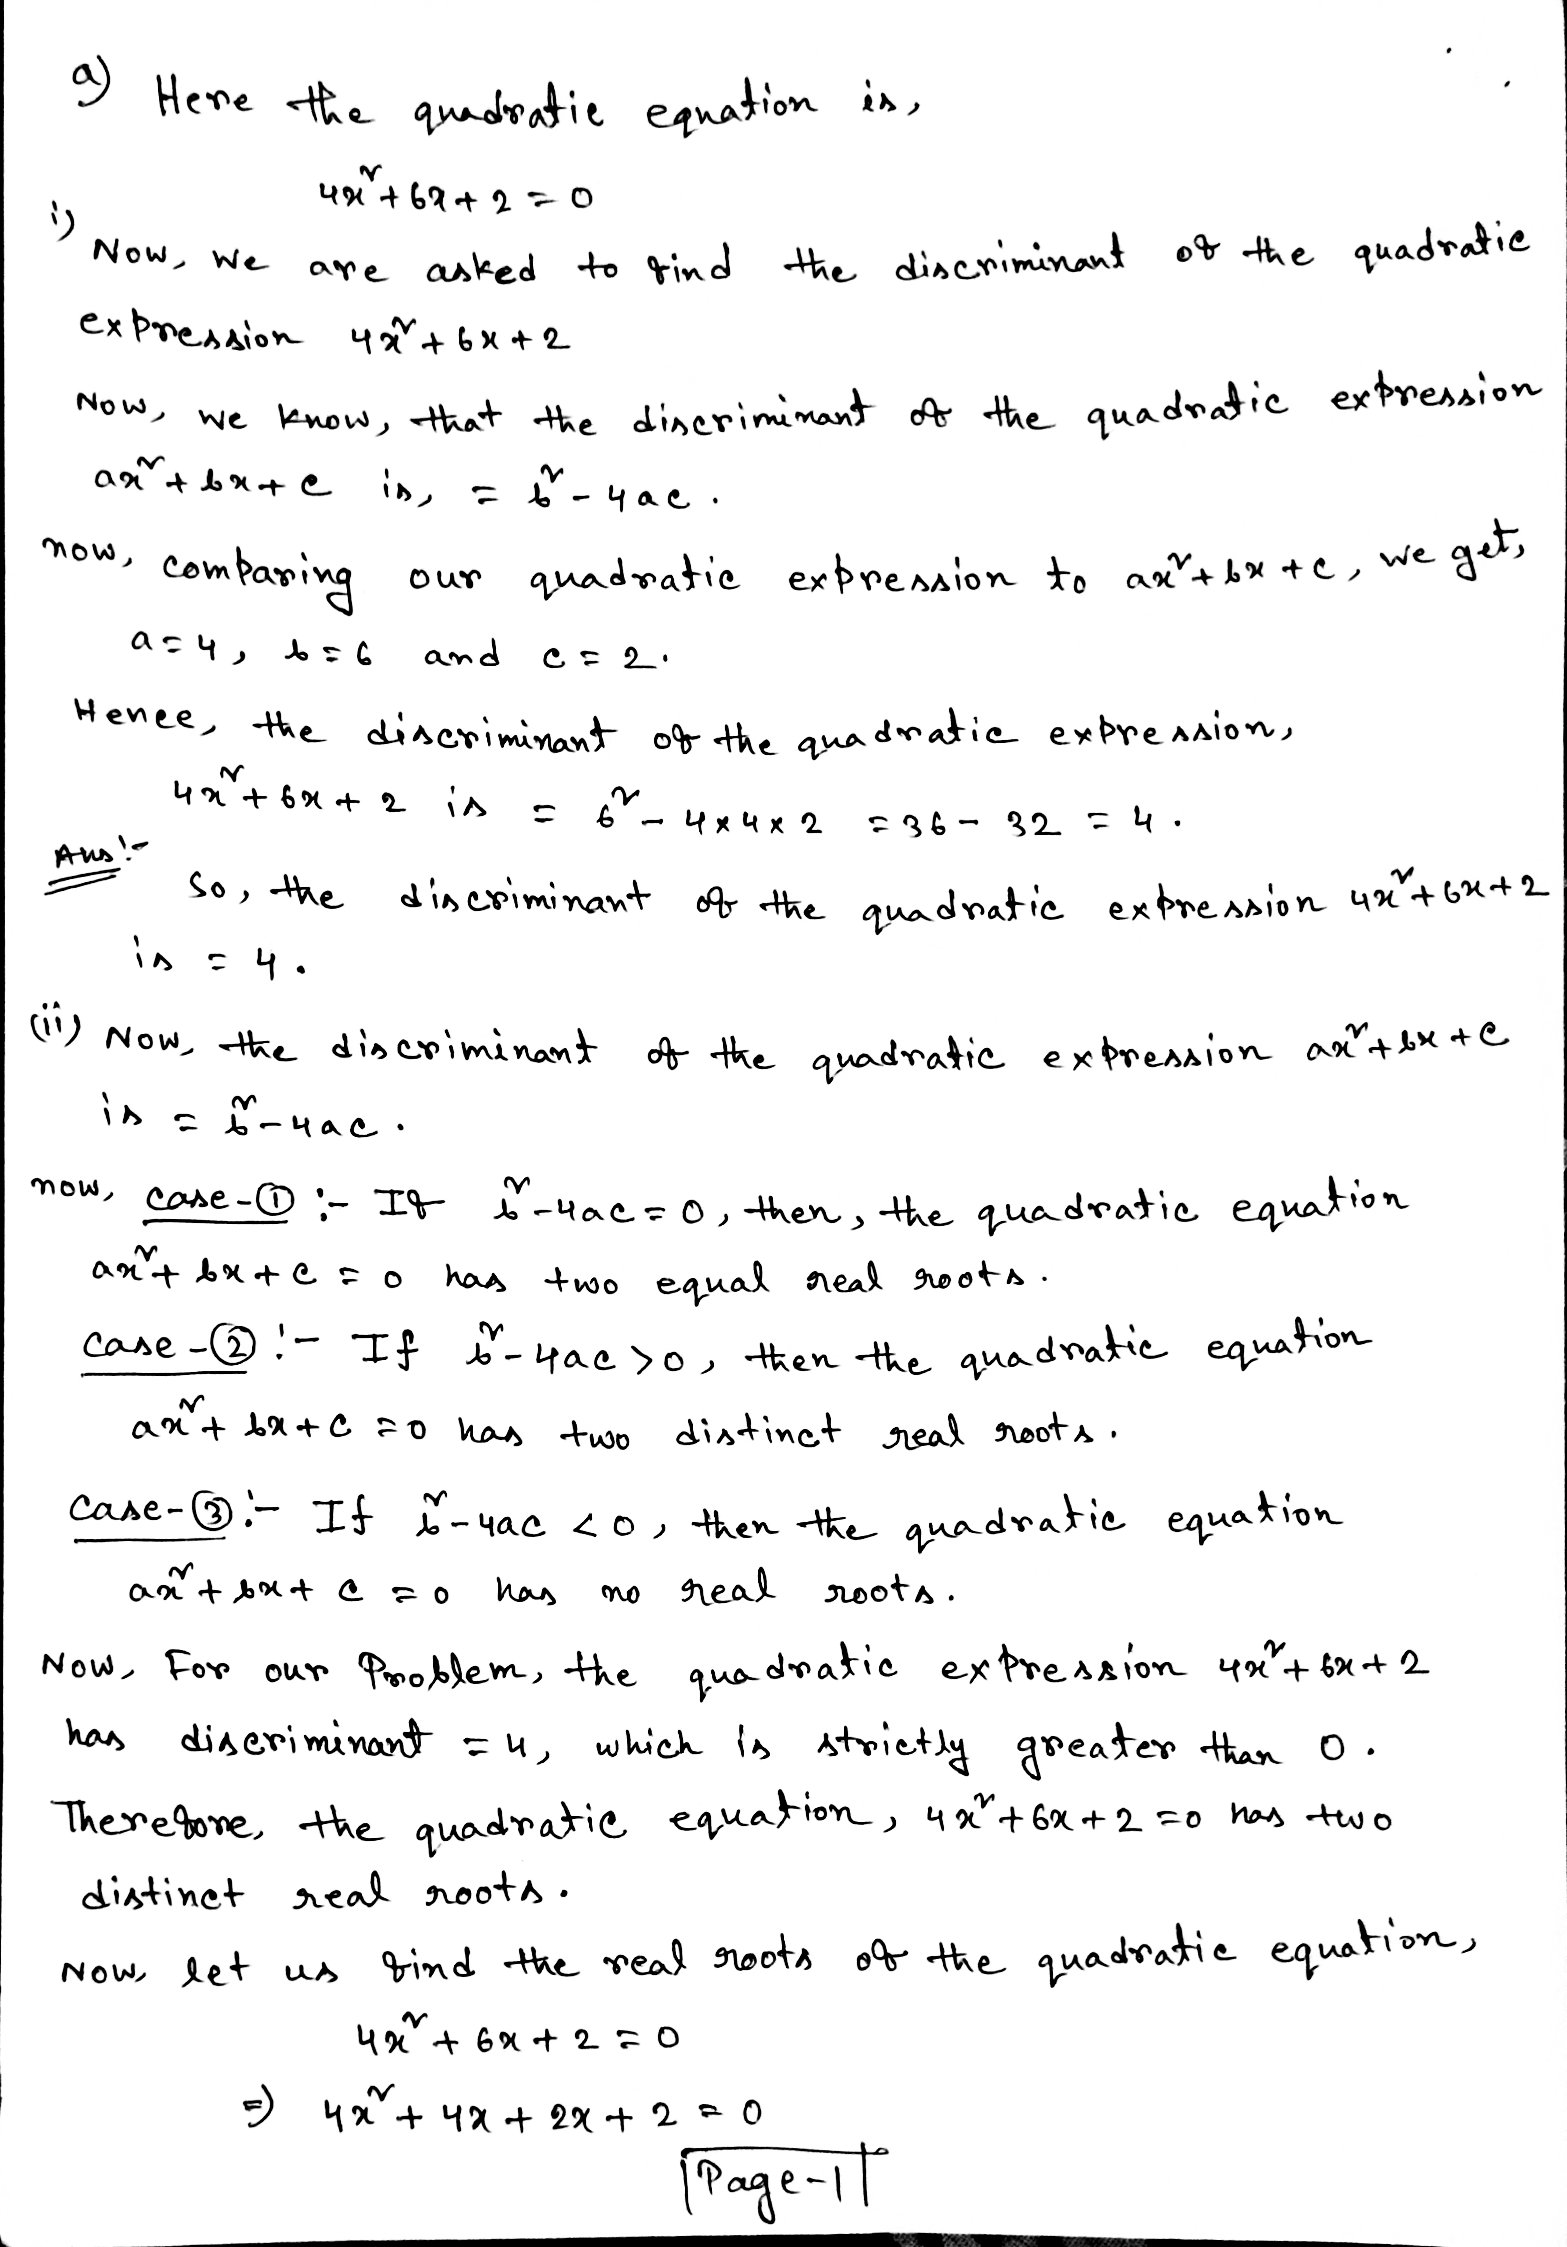 a) Here the quadratic equation is,
4x² + 6x + 2 = 0
i) Now, we are asked to find the discriminant of the quadratic
expression 4x² + 6x + 2
Now, we know, that the discriminant of the quadratic expression
ax² + bx + c is, = b² - 4ac.
now, comparing our quadratic expression to ax² + bx + c, we get,
a = 4, b = 6 and c = 2.
Hence, the discriminant of the quadratic expression,
4x² + 6x + 2 is = 6² - 4 × 4 × 2 = 36 - 32 = 4.
Ans:-
So, the discriminant of the quadratic expression 4x² + 6x + 2
is = 4.
(ii) Now, the discriminant of the quadratic expression ax² + bx + c
is = b² - 4ac.
now, case-① :- If b² - 4ac = 0, then, the quadratic equation
ax² + bx + c = 0 has two equal real roots.
case-② :- If b² - 4ac > 0, then the quadratic equation
ax² + bx + c = 0 has two distinct real roots.
case-③ :- If b² - 4ac < 0, then the quadratic equation
ax² + bx + c = 0 has no real roots.
Now, For our Problem, the quadratic expression 4x² + 6x + 2
has discriminant = 4, which is strictly greater than 0.
Therefore, the quadratic equation, 4x² + 6x + 2 = 0 has two
distinct real roots.
Now, let us find the real roots of the quadratic equation,
4x² + 6x + 2 = 0
⇒ 4x² + 4x + 2x + 2 = 0
Page-1